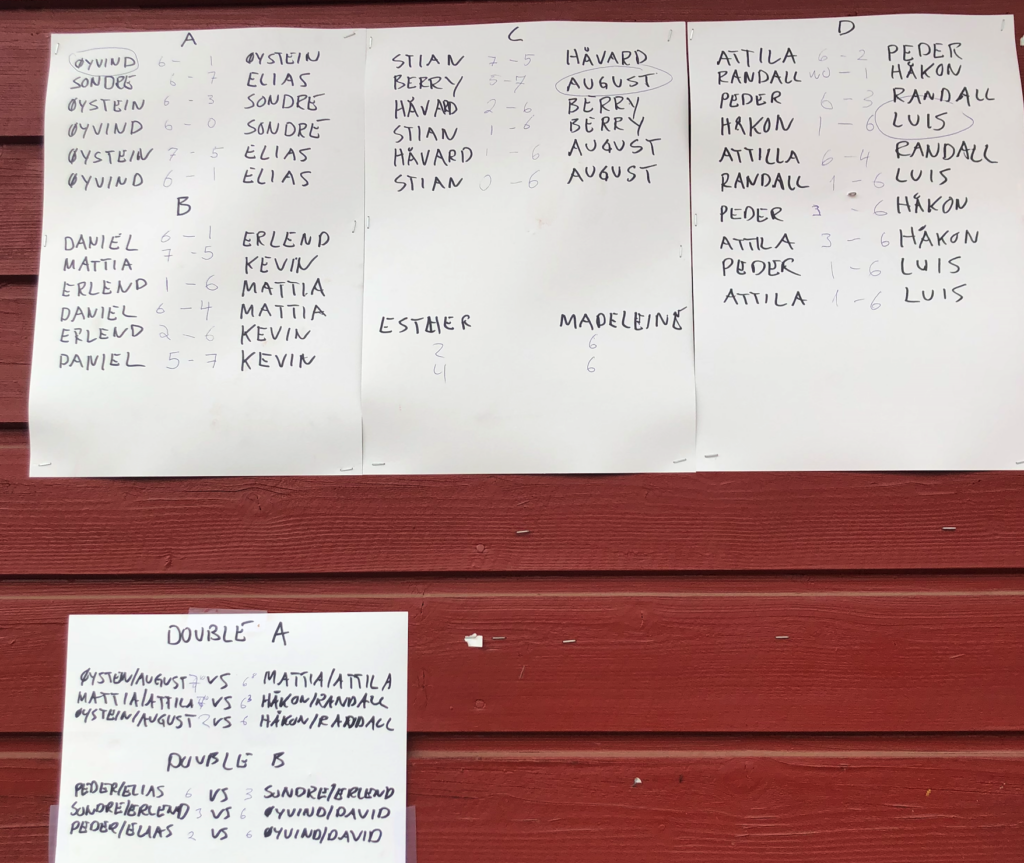 A
ØYVIND 6 - 1 ØYSTEIN
SONDRE 6 - 7 ELIAS
ØYSTEIN 6 - 3 SONDRE
ØYVIND 6 - 0 SONDRE
ØYSTEIN 7 - 5 ELIAS
ØYVIND 6 - 1 ELIAS
B
DANIEL 6 - 1 ERLEND
MATTIA 7 - 5 KEVIN
ERLEND 1 - 6 MATTIA
DANIEL 6 - 4 MATTIA
ERLEND 2 - 6 KEVIN
DANIEL 5 - 7 KEVIN
C
STIAN 7 - 5 HÅVARD
BERRY 5 - 7 AUGUST
HÅVARD 2 - 6 BERRY
STIAN 1 - 6 BERRY
HÅVARD 1 - 6 AUGUST
STIAN 0 - 6 AUGUST
ESTHER MADELEINE
2 6
4 6
D
ATTILA 6 - 2 PEDER
RANDALL - 1 HÅKON
PEDER 6 - 3 RANDALL
HÅKON 1 - 6 LUIS
ATTILLA 6 - 4 RANDALL
RANDALL 1 - 6 LUIS
PEDER 3 - 6 HÅKON
ATTILA 3 - 6 HÅKON
PEDER 1 - 6 LUIS
ATTILA 1 - 6 LUIS
DOUBLE A
ØYSTEN/AUGUST 7 VS 6 MATTIA/ATTILA
MATTIA/ATTILA 7 VS 6 HÅKON/RANDALL
ØYSTEIN/AUGUST 2 VS 6 HÅKON/RANDALL
DOUBLE B
PEDER/ELIAS 6 VS 3 SONDRE/ERLEND
SONDRE/ERLEND 3 VS 6 ØYVIND/DAVID
PEDER/ELIAS 2 VS 6 ØYVIND/DAVID